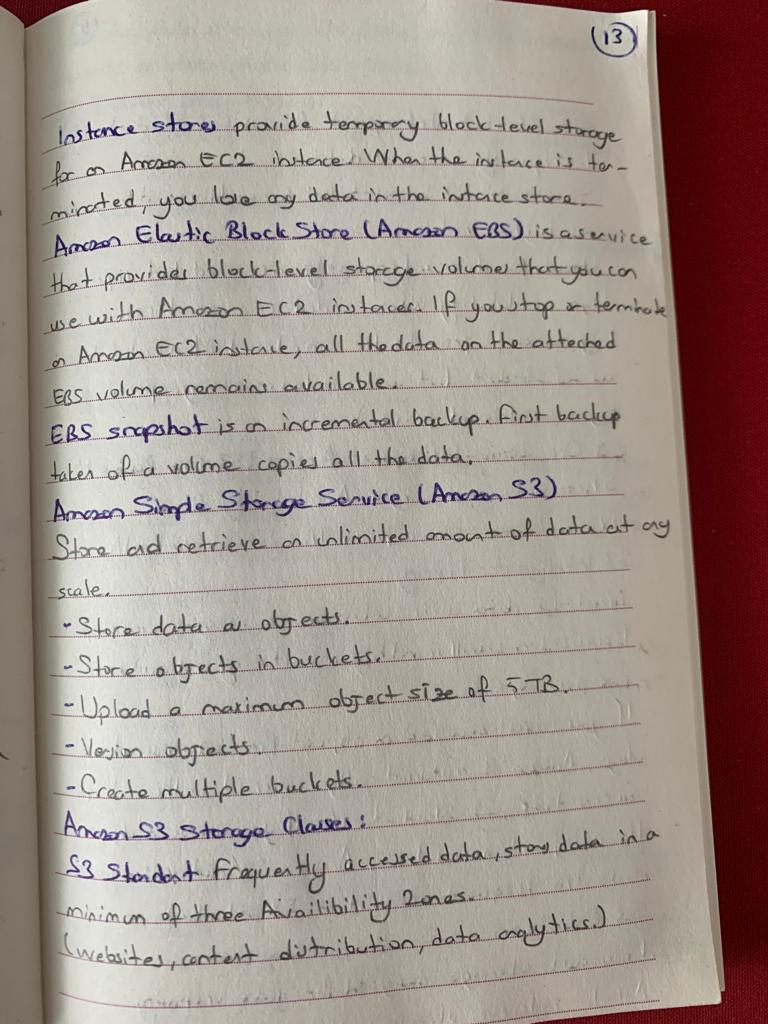 13
Instance stores provide temporary block-level storage
for an Amazon EC2 instance. When the instance is ter-
minated, you lose any data in the instance store.
Amazon Elastic Block Store (Amazon EBS) is a service
that provides block-level storage volumes that you can
use with Amazon EC2 instances. If you stop or terminate
an Amazon EC2 instance, all the data on the attached
EBS volume remains available.
EBS snapshot is an incremental backup. First backup
taken of a volume copies all the data.
Amazon Simple Storage Service (Amazon S3)
Store and retrieve an unlimited amount of data at any
scale.
- Store data as objects.
- Store objects in buckets.
- Upload a maximum object size of 5 TB.
- Version objects.
- Create multiple buckets.
Amazon S3 Storage Classes:
S3 Standart Frequently accessed data, stores data in a
minimum of three Availibility Zones.
(websites, content distribution, data analytics.)